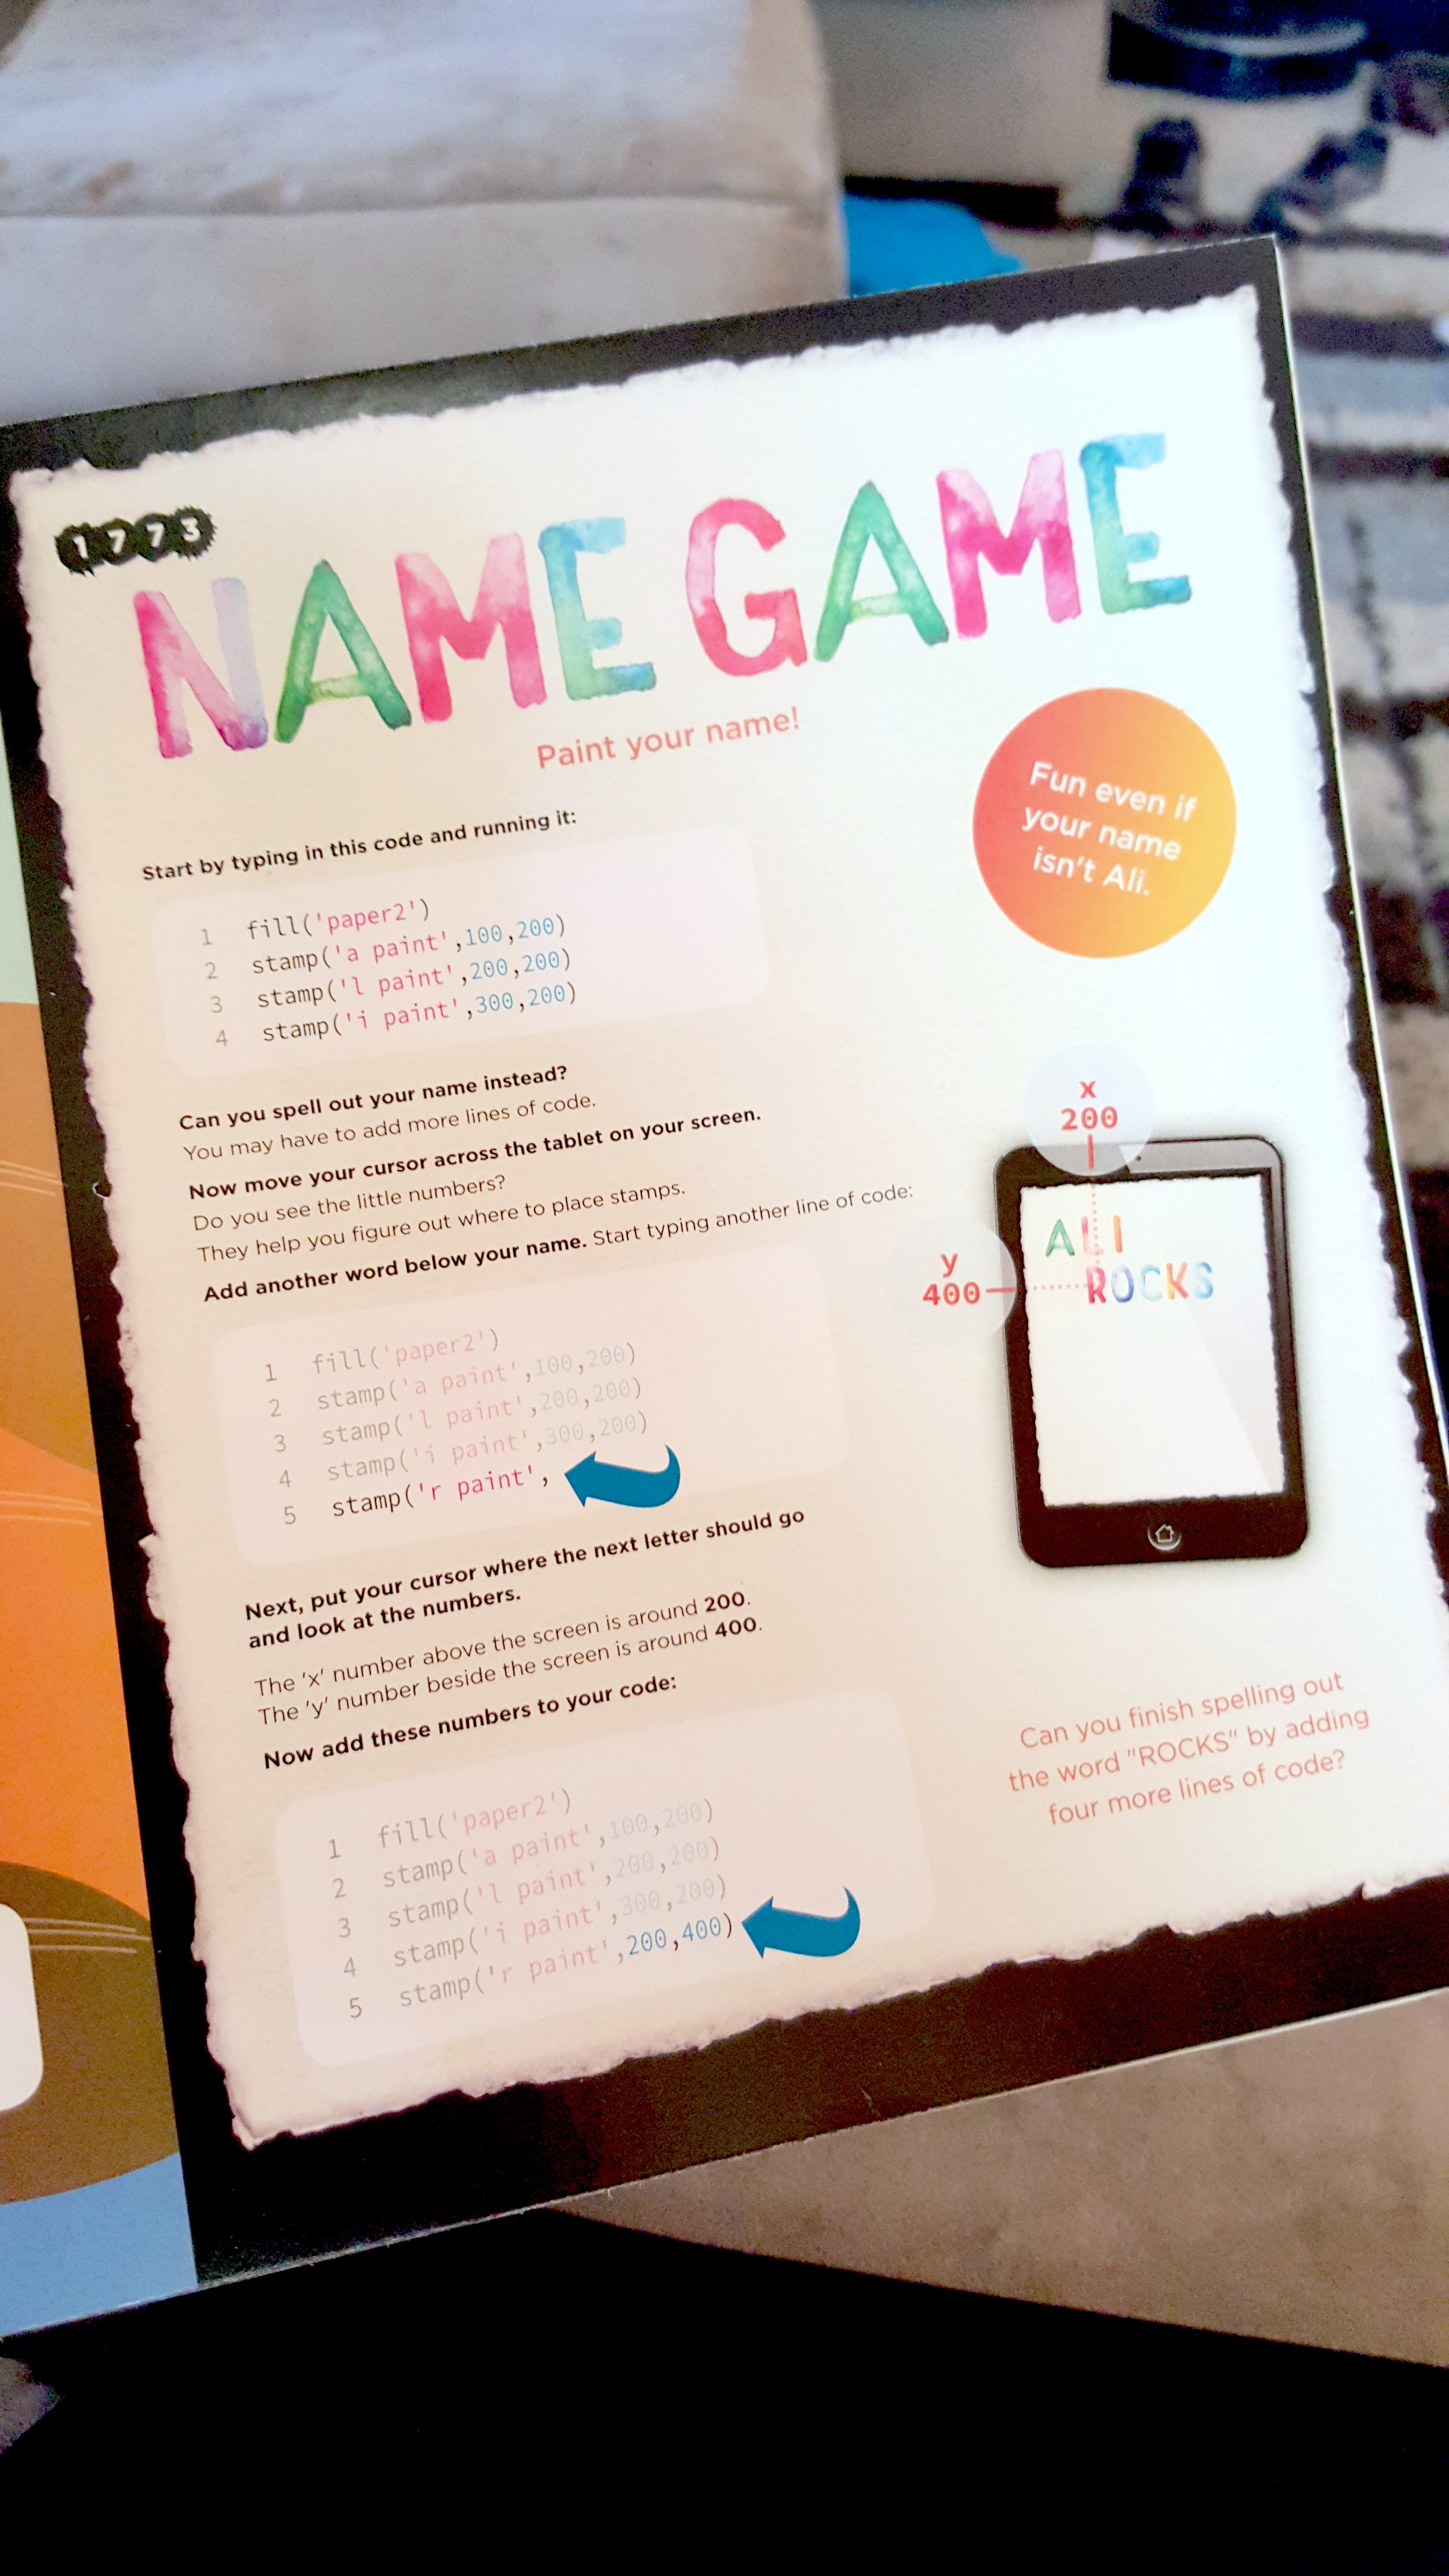 1773
NAME GAME
Paint your name!
Fun even if
your name
isn't Ali.
Start by typing in this code and running it:
1 fill('paper2')
2 stamp('a paint',100,200)
3 stamp('l paint',200,200)
4 stamp('i paint',300,200)
Can you spell out your name instead?
You may have to add more lines of code.
Now move your cursor across the tablet on your screen.
Do you see the little numbers?
They help you figure out where to place stamps.
Add another word below your name. Start typing another line of code:
1 fill('paper2')
2 stamp('a paint',100,200)
3 stamp('l paint',200,200)
4 stamp('i paint',300,200)
5 stamp('r paint',
x
200
y
400
ALI
ROCKS
Next, put your cursor where the next letter should go
and look at the numbers.
The 'x' number above the screen is around 200.
The 'y' number beside the screen is around 400.
Now add these numbers to your code:
1 fill('paper2')
2 stamp('a paint',100,200)
3 stamp('l paint',200,200)
4 stamp('i paint',300,200)
5 stamp('r paint',200,400)
Can you finish spelling out
the word "ROCKS" by adding
four more lines of code?